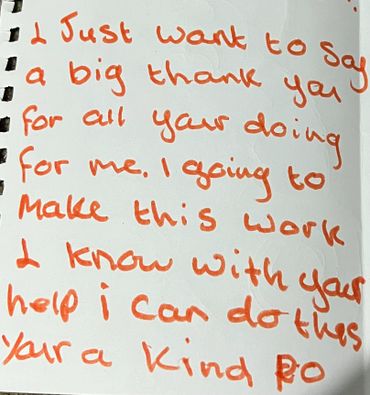 I Just want to say
a big thank you
for all your doing
for me. I going to
Make this work
I know with your
help i can do this
Your a kind PO